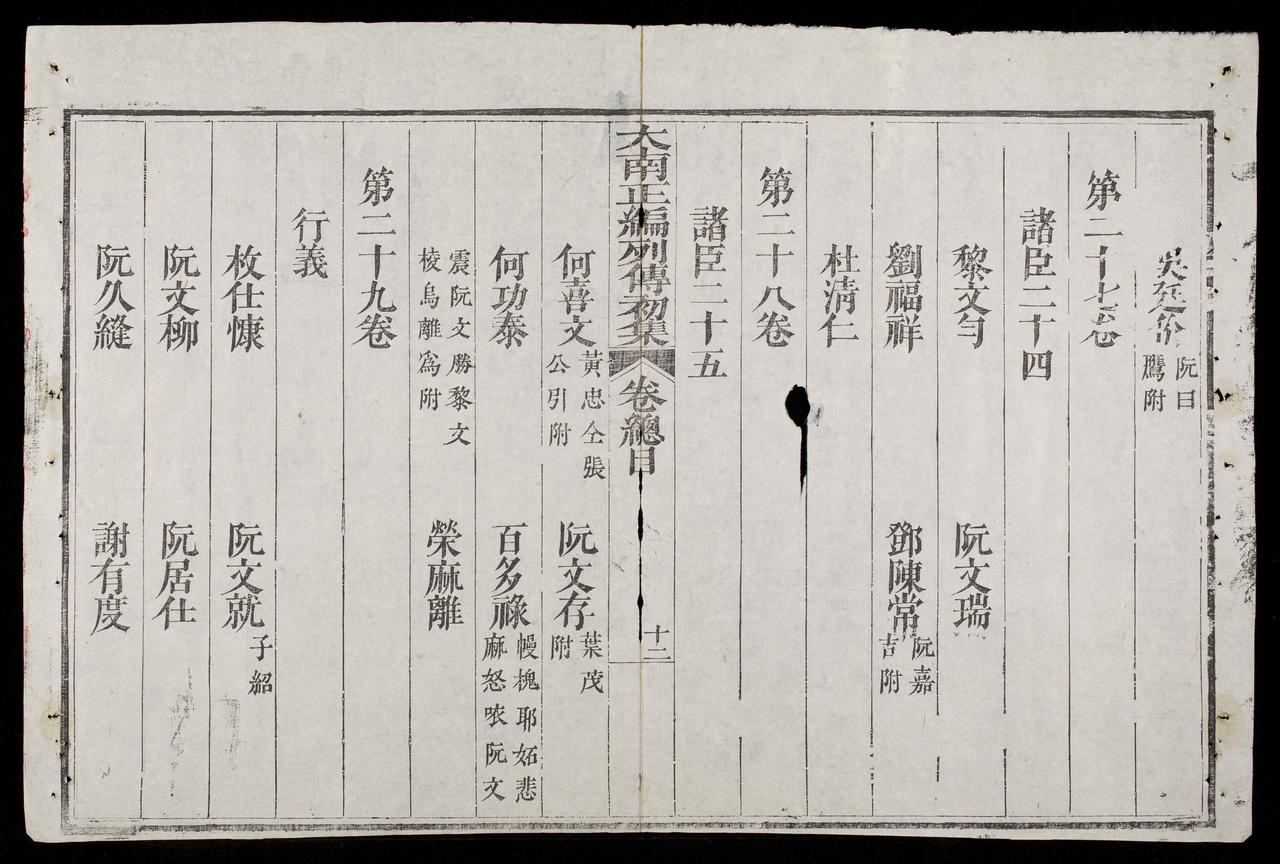 吳廷价 阮曰鷹附
第二十七卷
諸臣二十四
黎文勻 阮文瑞
劉福祥 鄧陳常 阮嘉吉附
杜淸仁
第二十八卷
諸臣二十五
大南正編列傳初集 卷總目 十二
何喜文 黃忠仝張公引附 阮文存 葉茂附
何功泰 百多祿 幔槐耶妬悲麻怒㕵阮文
震阮文勝黎文棱烏離爲附 榮麻離
第二十九卷
行義
枚仕慷 阮文就 子紹
阮文柳 阮居仕
阮久縫 謝有度